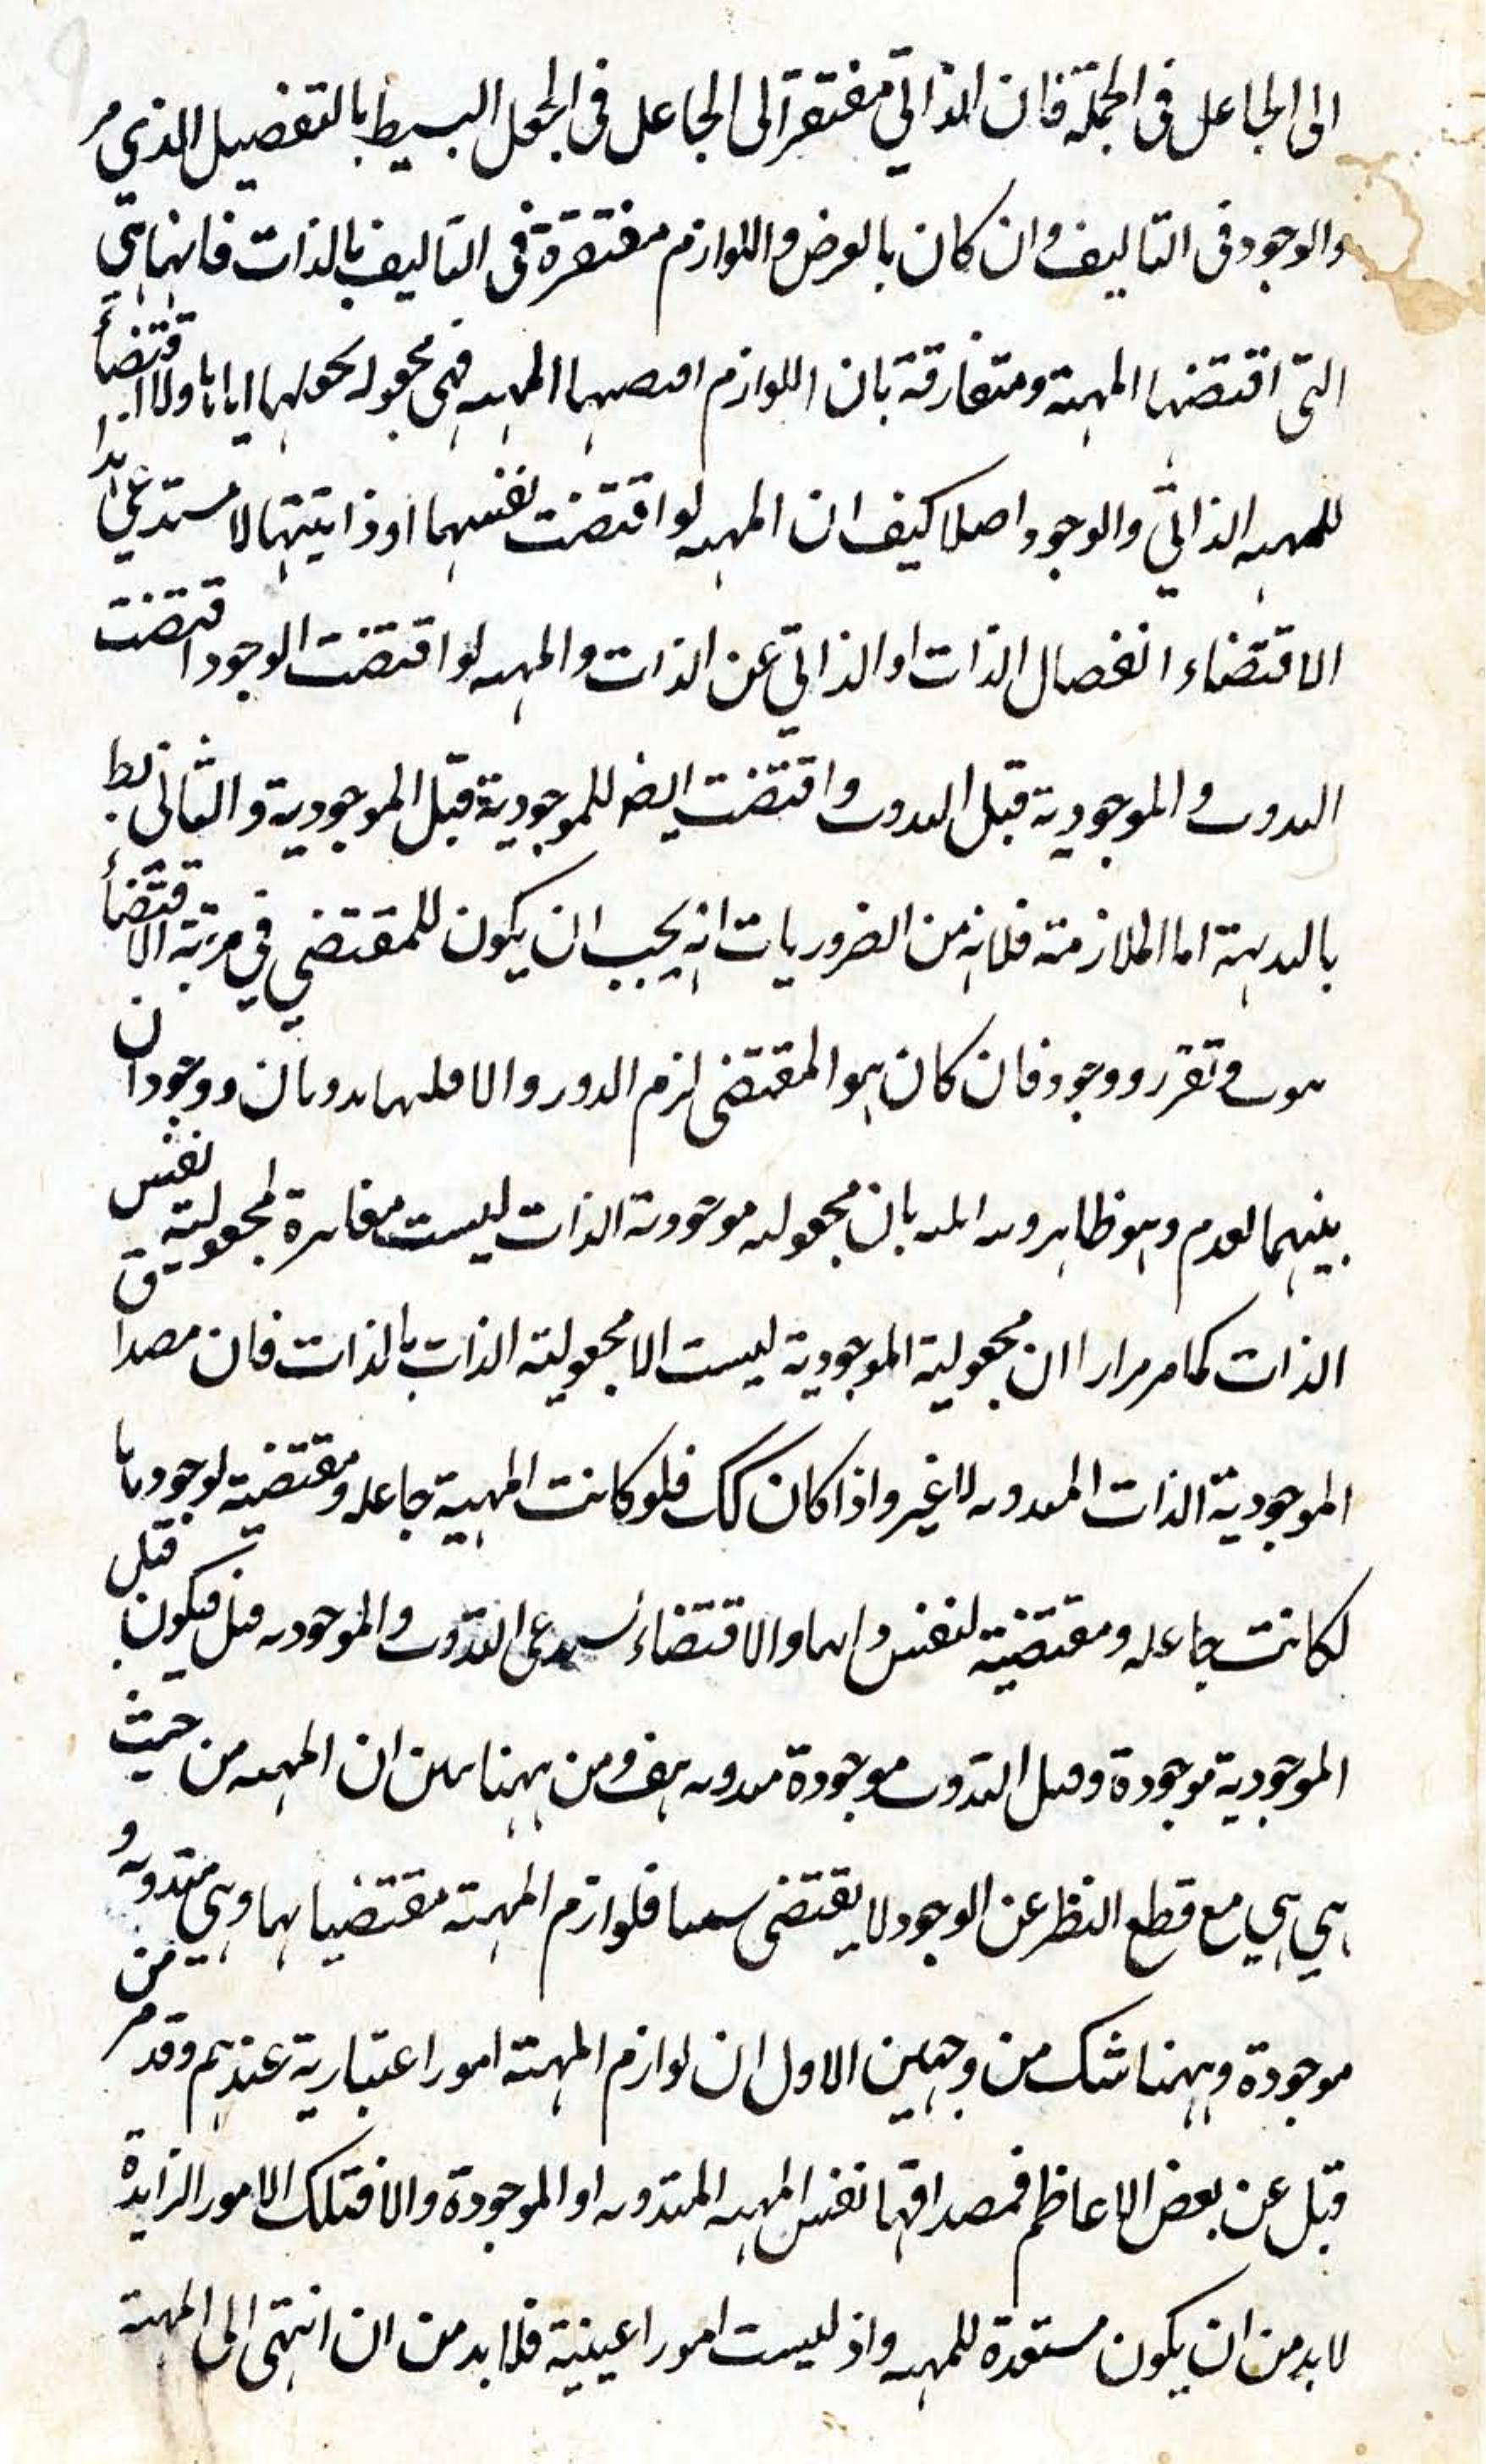 الى الجاعل فى الجملة فان الذاتي مفتقر الى الجاعل فى الجعل البسيط بالتفصيل الذي مر
والوجود فى التاليف وان كان بالعرض واللوازم مفتقرة فى التاليف بالذات فانها هي
التى اقتضتها المهية ومتفارقة بان اللوازم اقتضتها المهية فهى مجعولة بجعلها اياها ولا اقتضاء
للمهية الذاتي والوجود اصلا كيف ان المهية لو اقتضت نفسها او ذاتيتها لاستدعى هذا
الاقتضاء انفصال الذات او الذاتي عن الذات والمهية لو اقتضت الوجود اقتضت
التذوت والموجودية قبل التذوت واقتضت ايضا للموجودية قبل الموجودية والتالى بط
بالبديهة اما الملازمة فلانه من الضروريات انه يجب ان يكون للمقتضي في مرتبة الاقتضاء
تذوت وتقرر ووجود فان كان هو المقتضى لزم الدور والا فلها تذوتان ووجودان
بينهما العدم وهو ظاهر وتذكر بان مجعولية موجودية الذات ليست مغايرة لمجعولية نفس
الذات كما مر مرارا ان مجعولية الموجودية ليست الا مجعولية الذات بالذات فان مصداق
الموجودية الذات المتذوتة لا غير واذا كان كك فلو كانت المهية جاعلة ومقتضية لوجودها
لكانت جاعلة ومقتضية لنفس ذاتها والاقتضاء يستدعى التذوت والموجودية قبل فيكون قبل
الموجودية موجودة وقبل التذوت موجودة متذوتة هف ومن ههنا تبين ان المهية من حيث
هي هي مع قطع النظر عن الوجود لا يقتضى شيئا فلوازم المهية مقتضياتها وهي متذوتة و
موجودة وههنا شك من وجهين الاول ان لوازم المهية امور اعتبارية عندهم وقد مر من
قبل عن بعض الاعاظم فمصداقها نفس المهية المتذوتة او الموجودة والا فتلك الامور الزايدة
لا بد من ان يكون مستعدة للمهية واذ ليست امورا عينية فلا بد من ان انتهى الى المهية